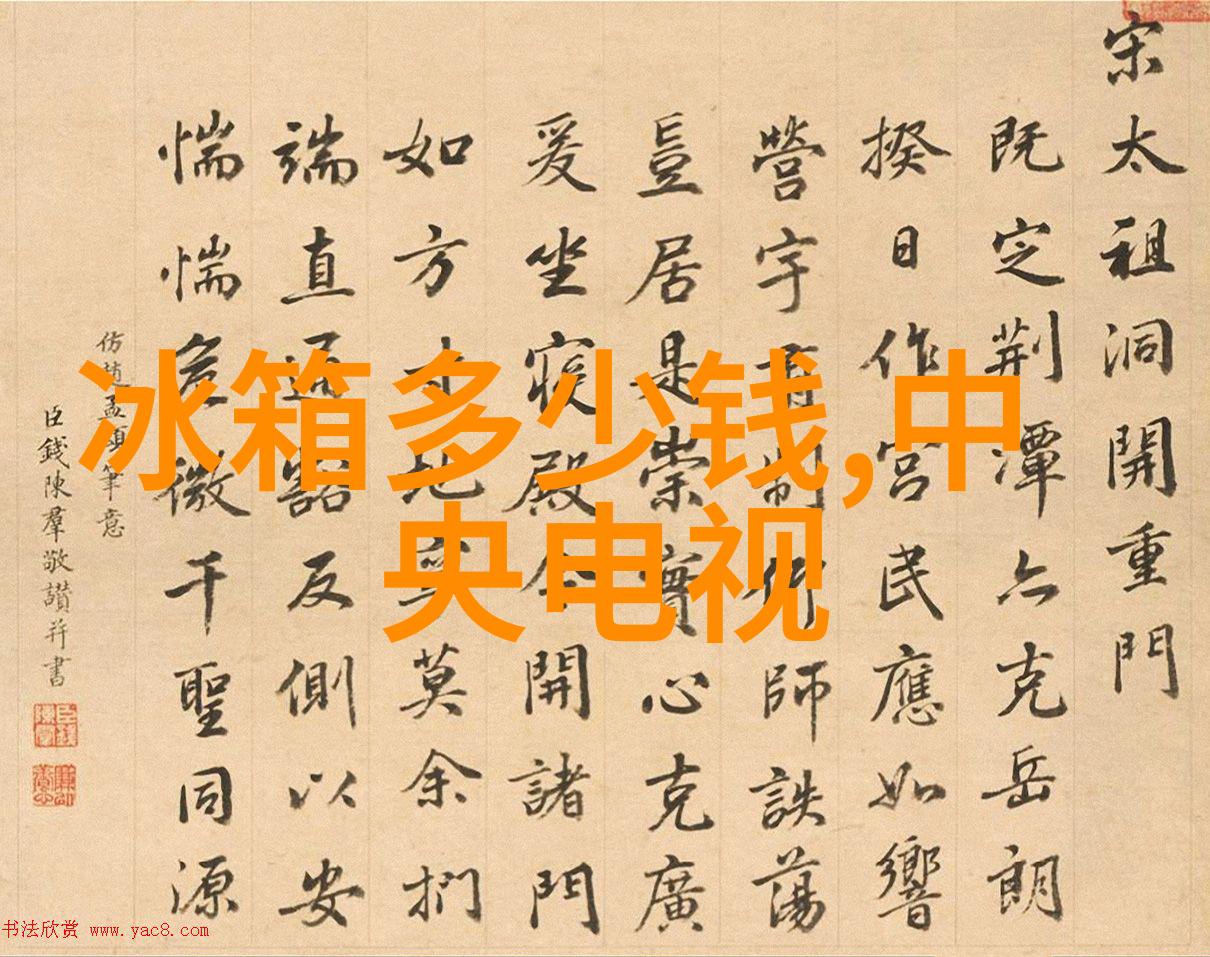 冰箱多少钱,中
央电视
宋太祖洞開重門
既定荆潭亦克岳朗
揆日作宫民應如響
營宇有制仰師詄蕩
豈居是崇實心克廣
爰坐寝殿令開諸門
如方寸地莫余捫
端直通豁反側以安
惴惴危微千聖同源
仿趙孟頫筆意
臣錢陳羣敬讚并書
书法欣赏 www.yac8.com